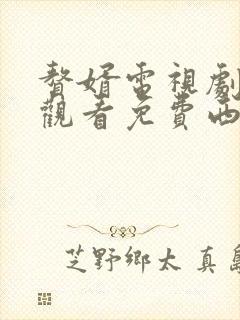 贅婿電視劇
觀看免費西
芝野鄉太 真島